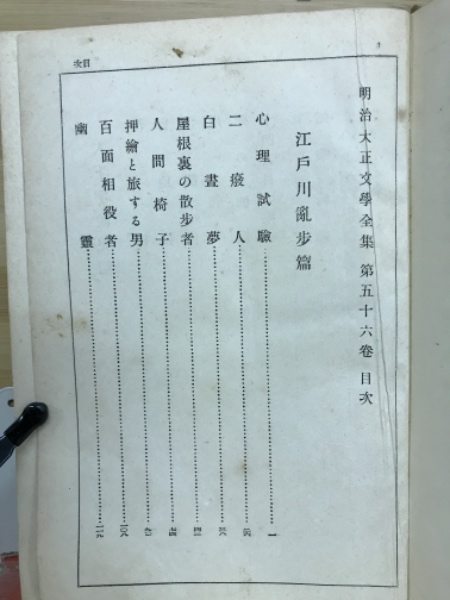 明治大正文學全集 第五十六卷 目次
江戶川亂步篇
心理試驗 一
二癈人
白晝夢
屋根裏の散步者
人間椅子
押繪と旅する男
百面相役者
幽靈
目次